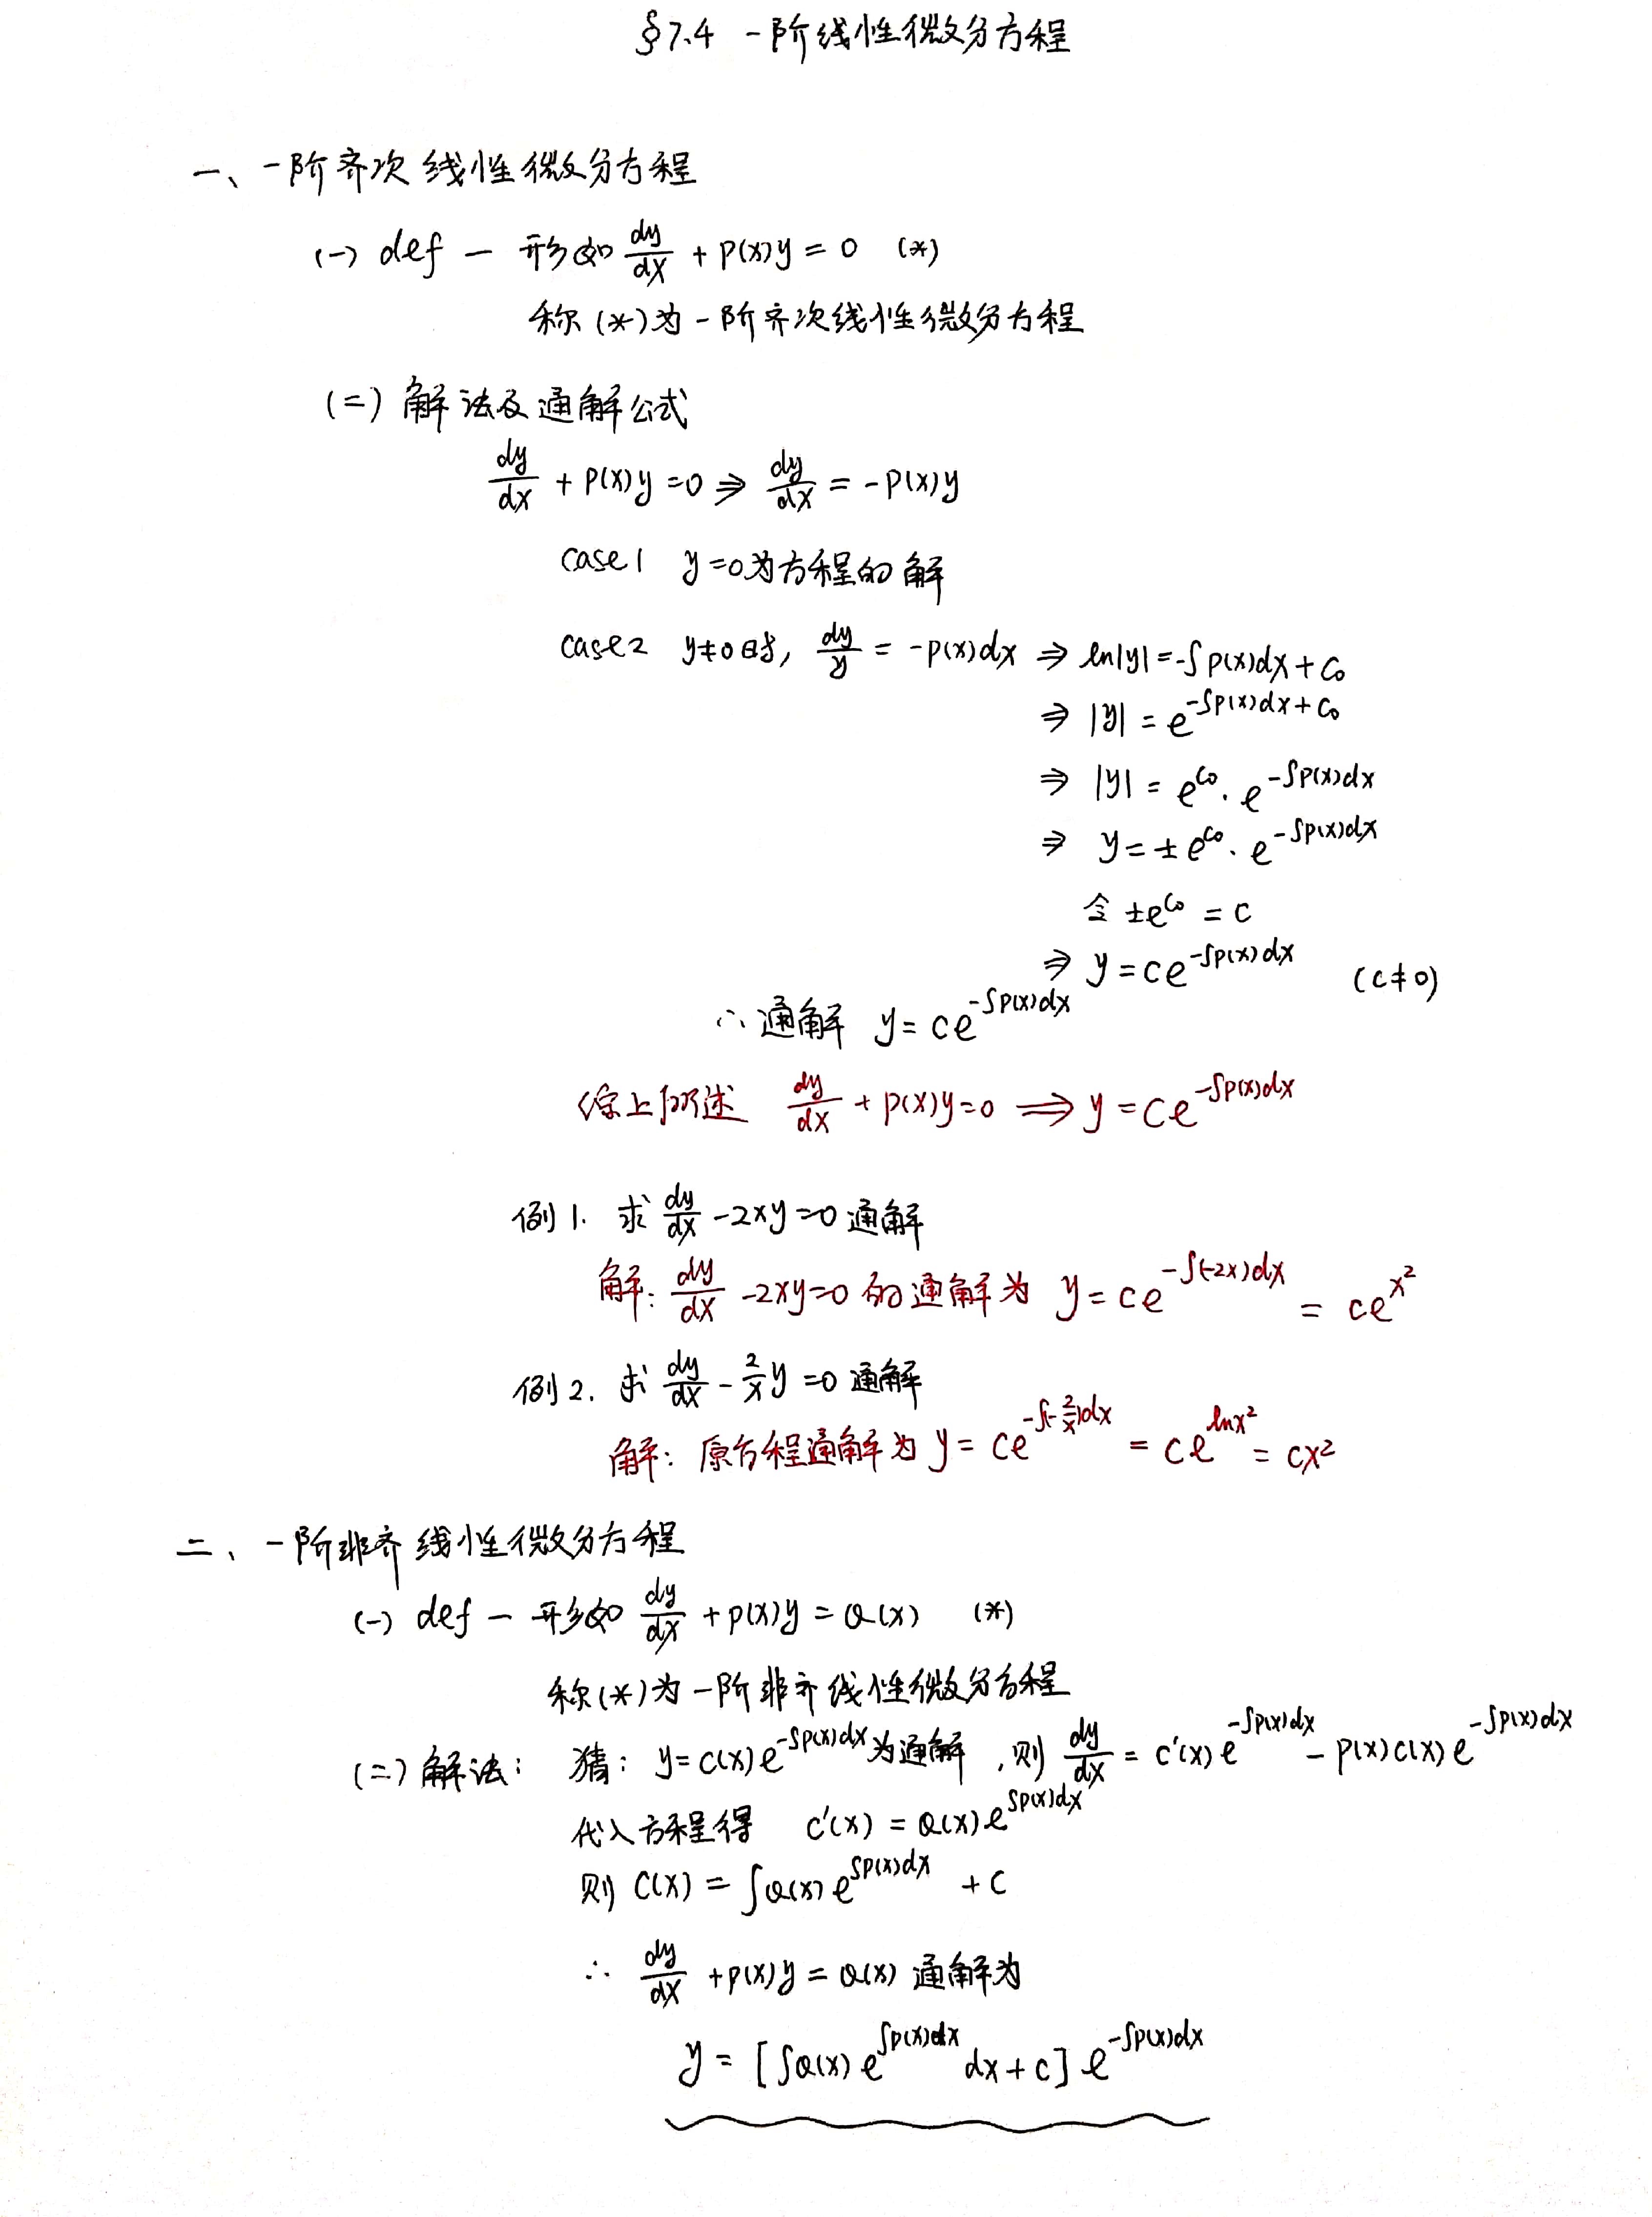 §7.4 一阶线性微分方程
一、一阶齐次线性微分方程
(一) def — 形如 dy/dx + P(x)y = 0 (*)
称(*)为一阶齐次线性微分方程
(二) 解法及通解公式
dy/dx + P(x)y = 0 ⇒ dy/dx = -P(x)y
case1 y=0为方程的解
case2 y≠0时, dy/y = -P(x)dx ⇒ ln|y| = -∫P(x)dx + C₀
⇒ |y| = e^{-∫P(x)dx + C₀}
⇒ |y| = e^{C₀} · e^{-∫P(x)dx}
⇒ y = ± e^{C₀} · e^{-∫P(x)dx}
令 ±e^{C₀} = C
⇒ y = Ce^{-∫P(x)dx} (C≠0)
∴ 通解 y = Ce^{-∫P(x)dx}
综上所述 dy/dx + P(x)y = 0 ⟹ y = Ce^{-∫P(x)dx}
例1. 求 dy/dx - 2xy = 0 通解
解: dy/dx - 2xy = 0 的通解为 y = Ce^{-∫(-2x)dx} = Ce^{x²}
例2. 求 dy/dx - 2/x y = 0 通解
解: 原方程通解为 y = Ce^{-∫(-2/x)dx} = Ce^{lnx²} = Cx²
二、一阶非齐线性微分方程
(一) def — 形如 dy/dx + P(x)y = Q(x) (*)
称(*)为一阶非齐线性微分方程
(二) 解法: 猜: y = C(x)e^{-∫P(x)dx} 为通解, 则 dy/dx = C'(x)e^{-∫P(x)dx} - P(x)C(x)e^{-∫P(x)dx}
代入方程得 C'(x) = Q(x)e^{∫P(x)dx}
则 C(x) = ∫Q(x)e^{∫P(x)dx} + C
∴ dy/dx + P(x)y = Q(x) 通解为
y = [∫Q(x)e^{∫P(x)dx}dx + C]e^{-∫P(x)dx}